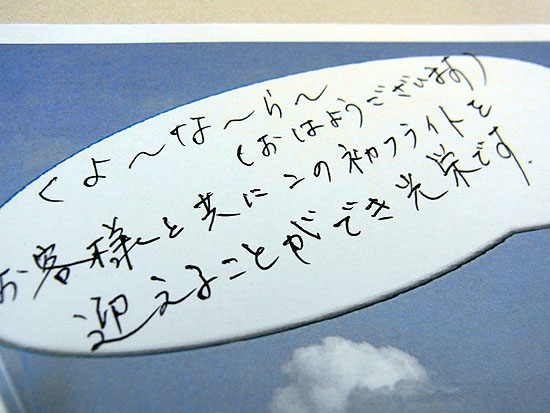 くよ〜な〜ら〜
(おはようございます)
お客様と共にこの初フライトを
迎えることができ光栄です.